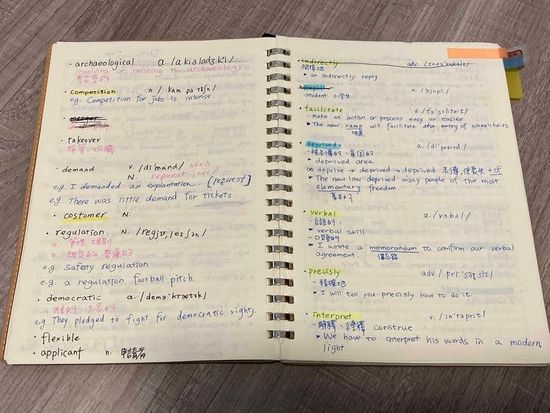 · archaeological a. /
involving or relating to archaeology
考古學的
· Competition n /
e.g. Competition for jobs is intense
· merger
· takeover
接管,收購
· demand v. /dɪˈmænd/ need
N. request, urged
e.g. I demanded an explanation. [request]
e.g. There was little demand for tickets.
· costomer N.
· regulation N.
n.
a.
e.g. Safety regulation
e.g. a regulation football pitch.
· democratic a.
e.g. They pledged to fight for democratic rights
· flexible
· applicant n. 申請者
· indirectly adv.
間接地
• an indirectly reply
· pupil n. /ˈpjupl/
student 小學生
· facilitate v.
- make an action or process easy or easier
• The new ramp will facilitate the entry of wheelchairs.
· deprived a.
• deprived area
deprive → deprived → deprived
• The new law deprived many people of the most
elementary freedom
基本的
· verbal a.
• 言語的
• verbal skill
• 口頭的
• I wrote a memorandum to confirm our verbal
agreement. 備忘錄
· precisly adv
- 精確地
• I will tell you precisly how to do it.
· interpret v.
- 解釋 詮釋 construe
• We have to interpret his words in a modern
light.